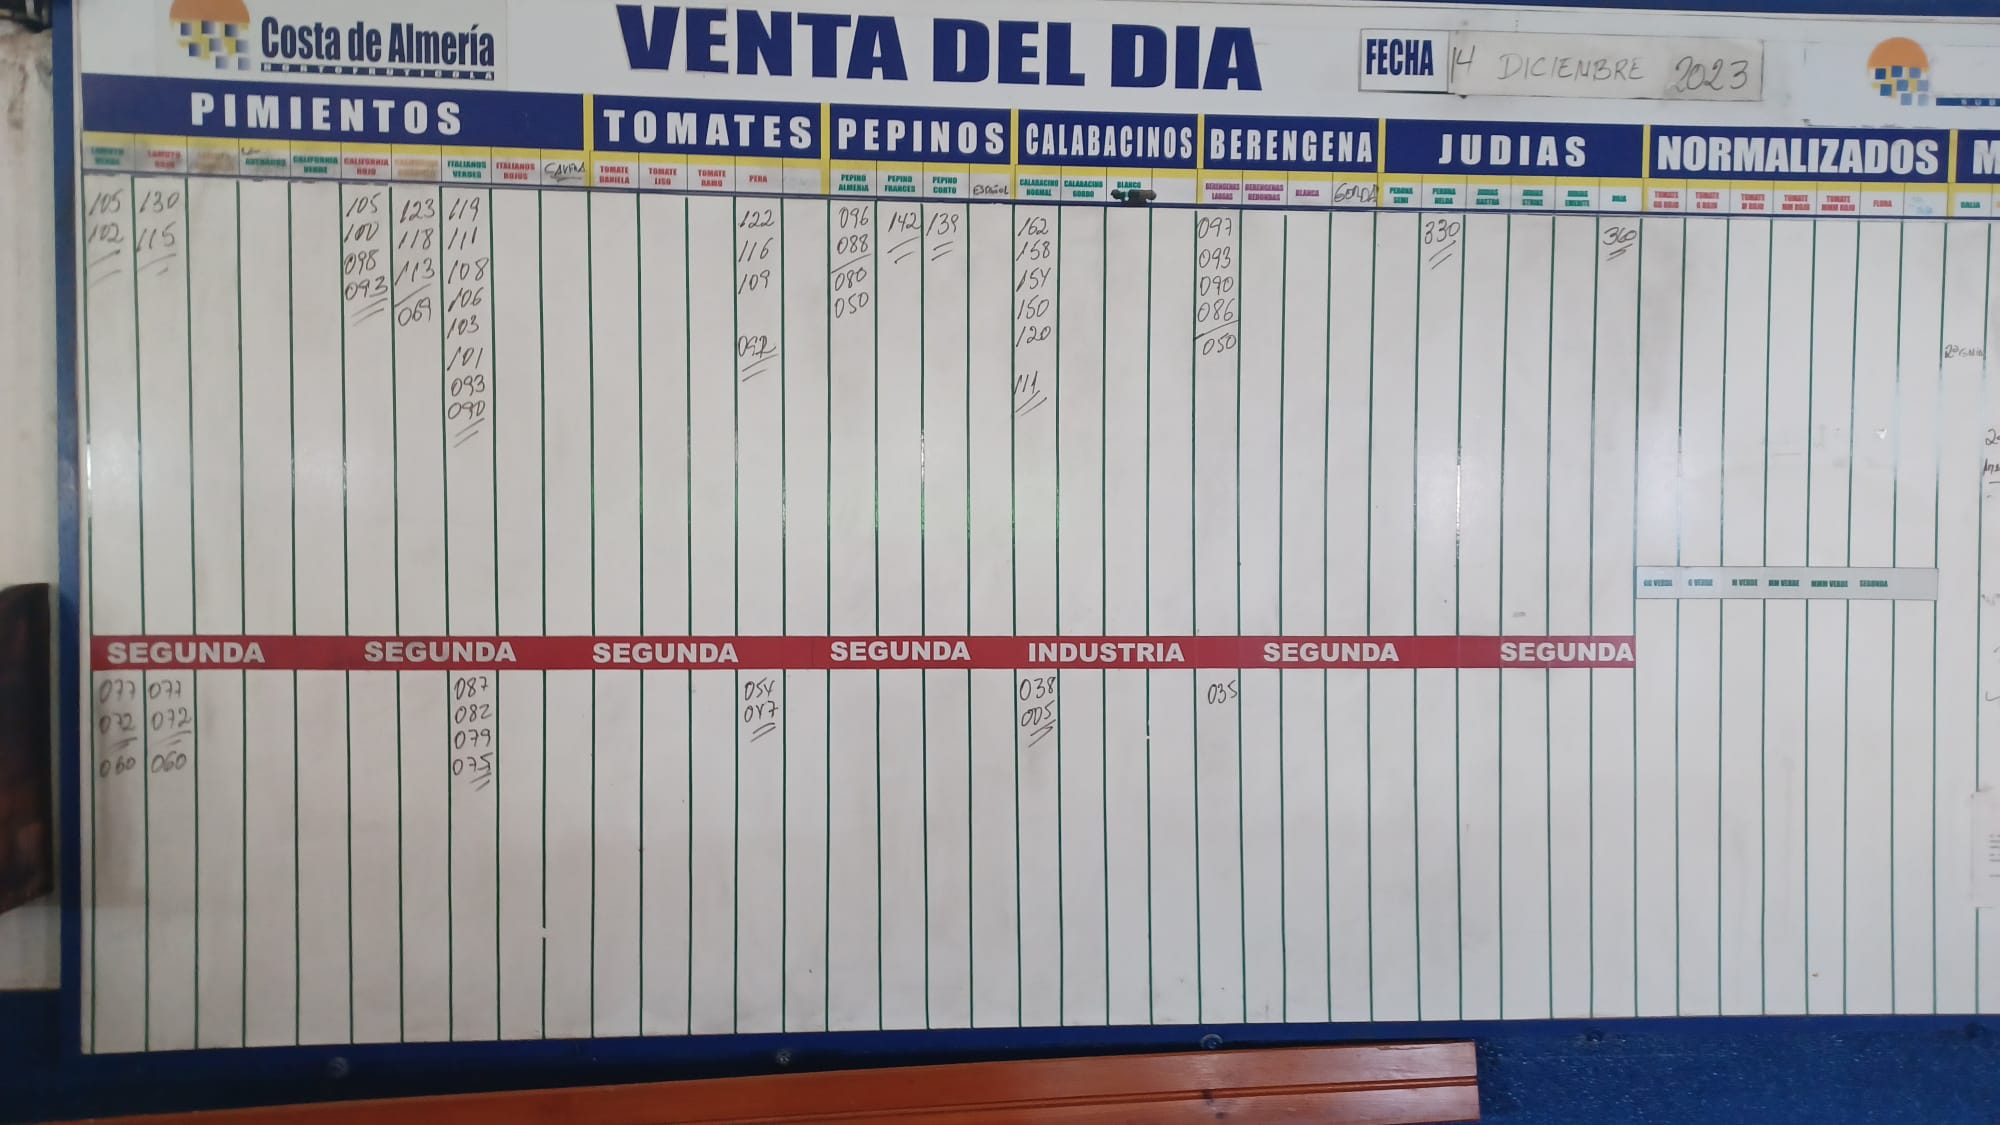 Costa de Almería
HORTOFRUTICOLA
VENTA DEL DIA
FECHA 14 DICIEMBRE 2023
PIMIENTOS TOMATES PEPINOS CALABACINOS BERENGENA JUDIAS NORMALIZADOS M
LAMUYO VERDE
LAMUYO ROJO
CALIFORNIA VERDE
CALIFORNIA ROJO
ITALIANOS VERDES
ITALIANOS ROJOS
TOMATE DANIELA
TOMATE LISO
TOMATE RAMO
PERA
PEPINO ALMERIA
PEPINO FRANCES
PEPINO CORTO
ESPAÑOL
CALABACINO NORMAL
CALABACINO GORDO
BLANCO
BERENGENAS LARGAS
BERENGENAS REDONDAS
BLANCA
GORDA
PERONA SEMI
PERONA HELDA
JUDIAS RASTRA
JUDIAS STRIKE
JUDIAS EMERITE
ROJA
TOMATE GG ROJO
TOMATE G ROJO
TOMATE M ROJO
TOMATE MM ROJO
TOMATE MMM ROJO
FLORA
GALIA
105 130 105 123 119 122 096 142 139 162 097 330 360
102 115 100 118 111 116 088 158 093
098 113 108 109 080 154 090
093 069 106 050 150 086
103 092 120 050
101 111
093
090
GG VERDE G VERDE M VERDE MM VERDE MMM VERDE SEGUNDA
SEGUNDA SEGUNDA SEGUNDA SEGUNDA INDUSTRIA SEGUNDA SEGUNDA
077 077 087 054 038 035
072 072 082 047 005
060 060 079
075